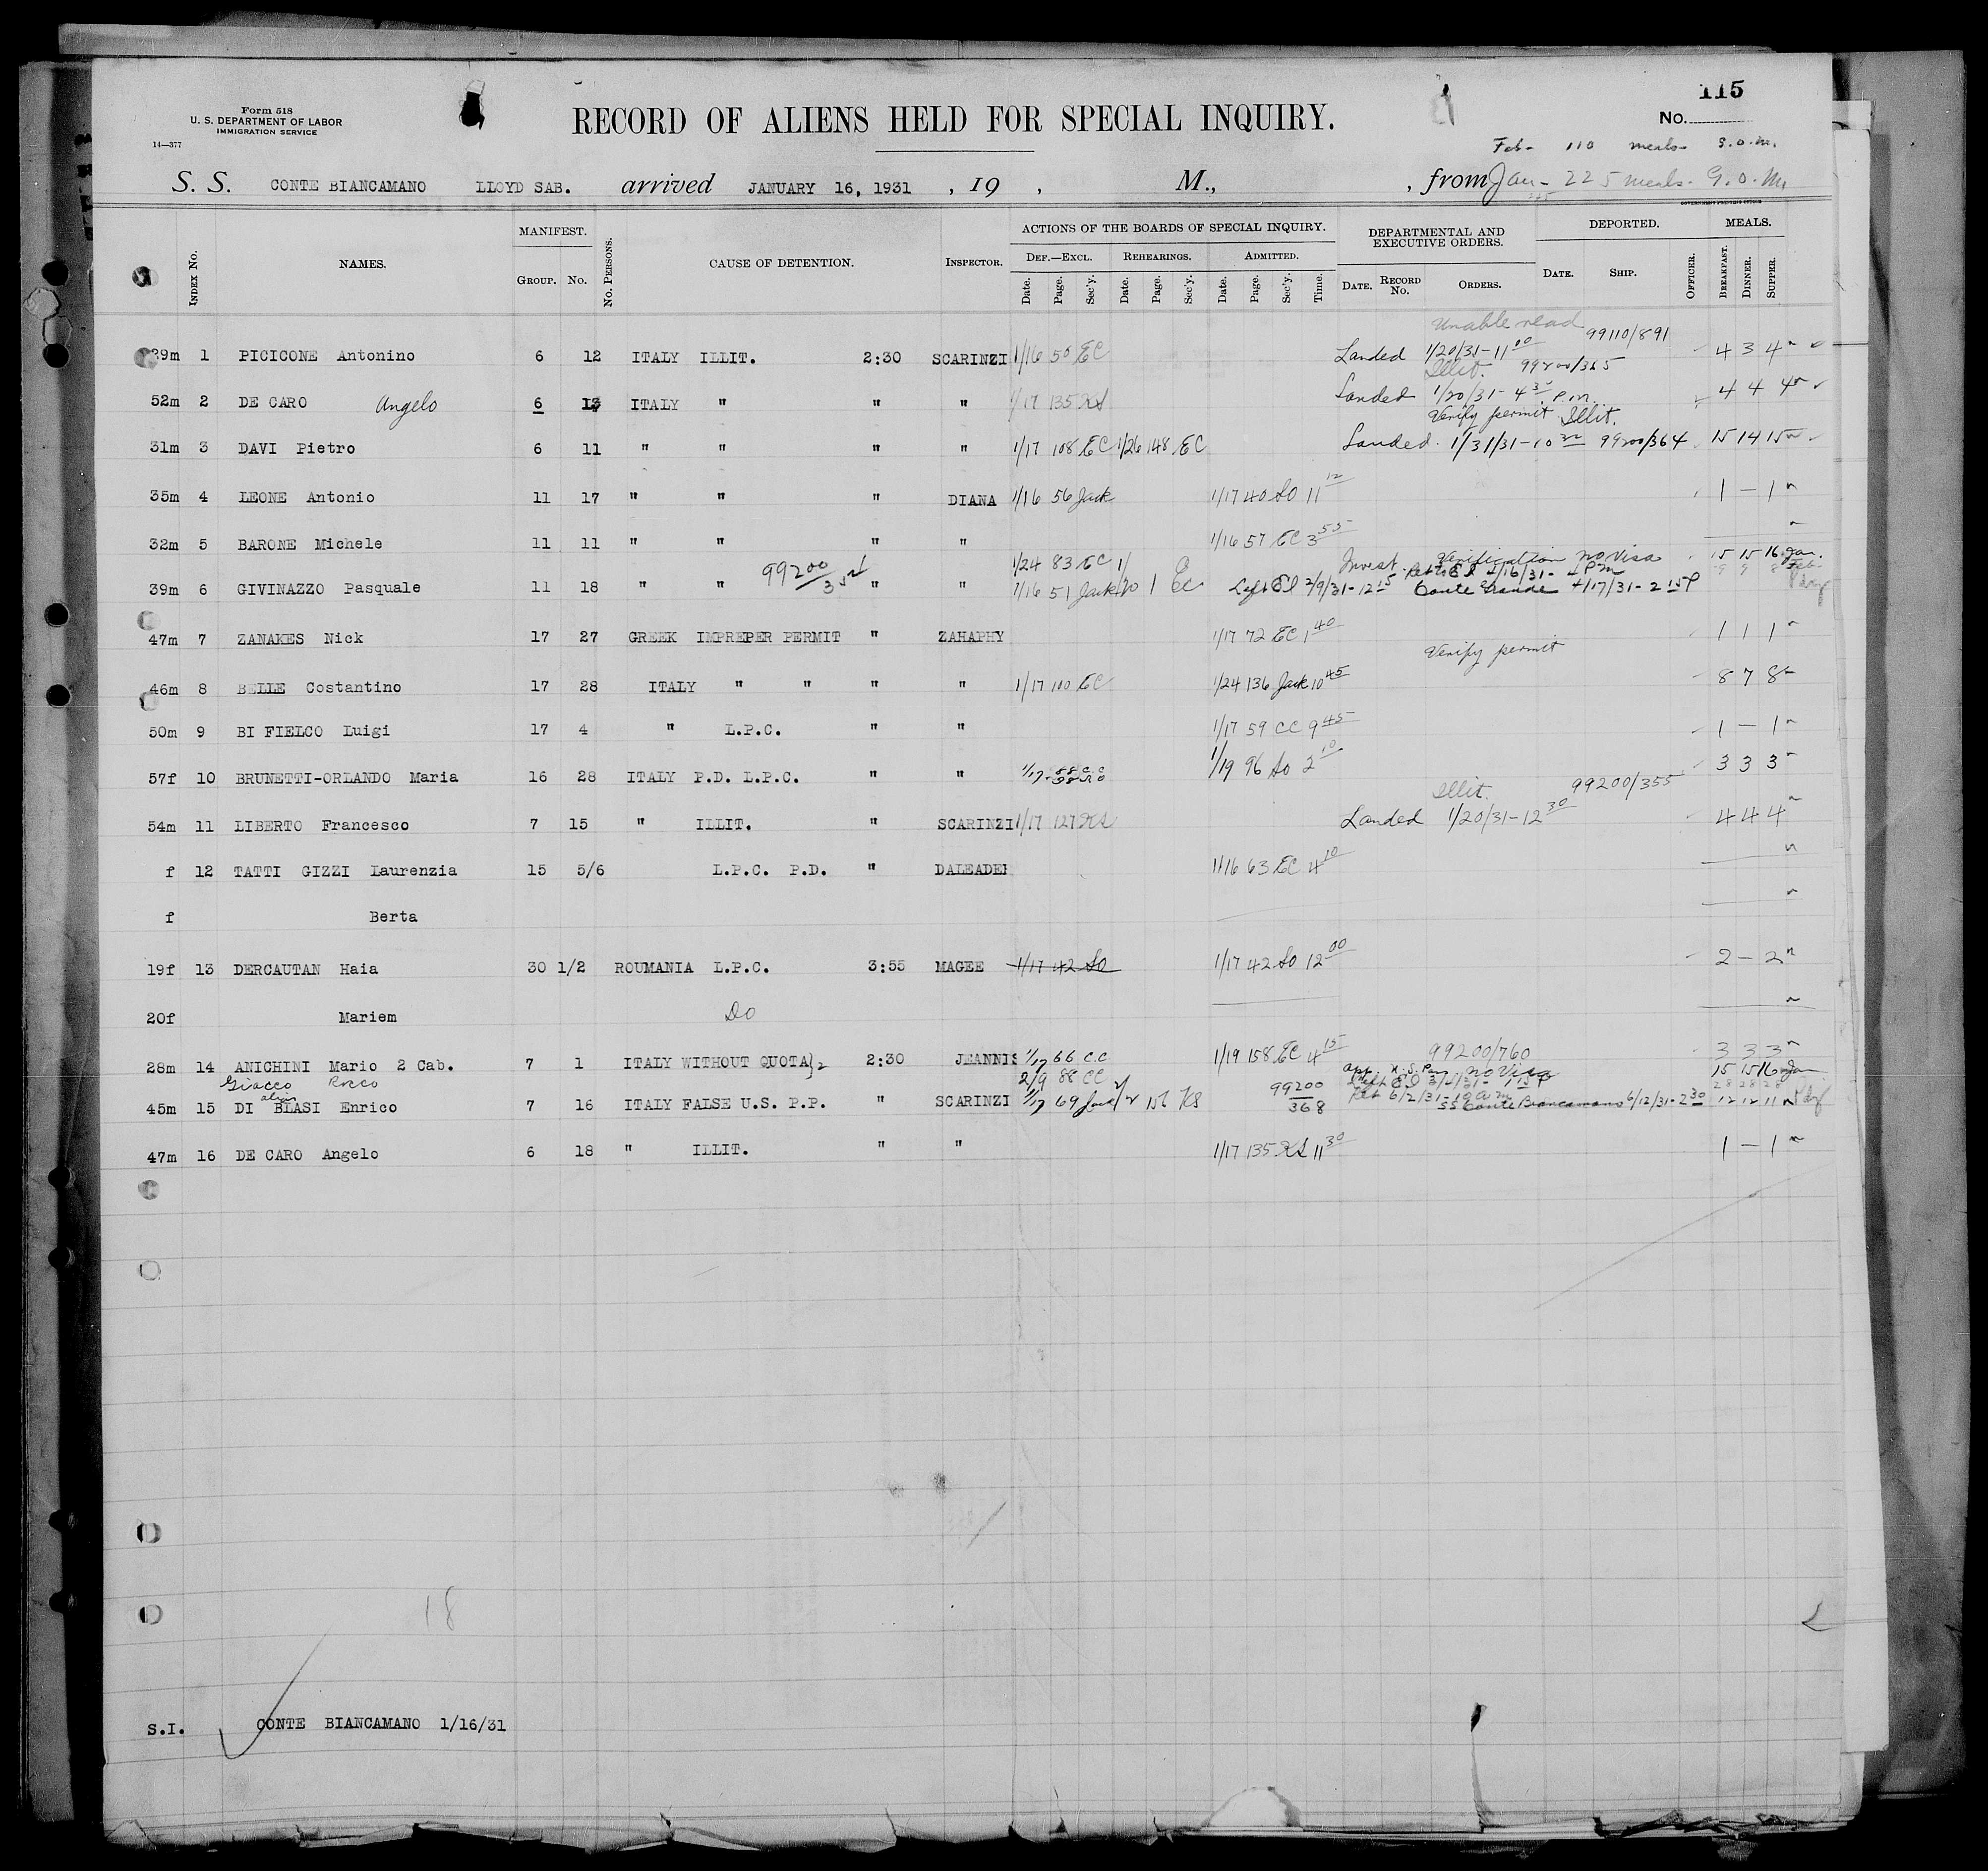 115
Form 518
U. S. DEPARTMENT OF LABOR
IMMIGRATION SERVICE
14—377
RECORD OF ALIENS HELD FOR SPECIAL INQUIRY.
No.
Feb- 110 meals- G.O.M.
S. S. CONTE BIANCAMANO LLOYD SAB. arrived JANUARY 16, 1931 , 19 , M., , from Jan- 225 meals- G.O.M.
GOVERNMENT PRINTING OFFICE
INDEX No. NAMES. MANIFEST. GROUP. No. No. PERSONS. CAUSE OF DETENTION. INSPECTOR. ACTIONS OF THE BOARDS OF SPECIAL INQUIRY. DEF.—EXCL. Date. Page. Sec'y. REHEARINGS. Date. Page. Sec'y. ADMITTED. Date. Page. Sec'y. Time. DEPARTMENTAL AND EXECUTIVE ORDERS. DATE. RECORD No. ORDERS. DEPORTED. DATE. SHIP. OFFICER. MEALS. BREAKFAST. DINNER. SUPPER.
Unable read 99110/891
39m 1 PICICONE Antonino 6 12 ITALY ILLIT. 2:30 SCARINZI 1/16 50 EC Landed 1/20/31-11 00 4 3 4
Illit. 99200/365
52m 2 DE CARO Angelo 6 13 ITALY " " " 1/17 135 KS Landed 1/20/31- 4 30 P.m. 4 4 4
Verify permit Illit.
31m 3 DAVI Pietro 6 11 " " " " 1/17 108 EC 1/26 148 EC Landed. 1/31/31-10 30 99200/364 15 14 15
35m 4 LEONE Antonio 11 17 " " " DIANA 1/16 56 Jack 1/17 40 SO 11 12 1 — 1
32m 5 BARONE Michele 11 11 " " " " 1/16 57 EC 3 55
99200/352 1/24 83 EC Invest. Verification no visa 15 15 16 Jan.
Ret to EI 4/16/31- 1 Pm 9 9 8 Feb.
39m 6 GIVINAZZO Pasquale 11 18 " " " " 1/16 51 Jack 1/30 1 EC Left EI 2/9/31-12 15 Conte Grande 4/17/31- 2 15 P
47m 7 ZANAKES Nick 17 27 GREEK IMPREPER PERMIT " ZAHAPHY 1/17 72 EC 1 40 1 1 1
Verify permit
46m 8 BELLE Costantino 17 28 ITALY " " " " 1/17 100 EC 1/24 136 Jack 10 45 8 7 8
50m 9 BI FIELCO Luigi 17 4 " L.P.C. " " 1/17 59 CC 9 45 1 — 1
57f 10 BRUNETTI-ORLANDO Maria 16 28 ITALY P.D. L.P.C. " " 1/17 1/19 96 SO 2 10 3 3 3
Illit. 99200/355
54m 11 LIBERTO Francesco 7 15 " ILLIT. " SCARINZI 1/17 127 KS Landed 1/20/31-12 30 4 4 4
f 12 TATTI GIZZI Laurenzia 15 5/6 L.P.C. P.D. " DALEADER 1/16 63 EC 4 10
f Berta
19f 13 DERCAUTAN Haia 30 1/2 ROUMANIA L.P.C. 3:55 MAGEE 1/17 42 SO 1/17 42 SO 12 00 2 — 2
20f Mariem Do
28m 14 ANICHINI Mario 2 Cab. 7 1 ITALY WITHOUT QUOTA}2 2:30 JEANNIS 1/17 66 C.C 1/19 158 EC 4 15 99200/760 3 3 3
Giacco Rocco 2/9 88 CC no visa 15 15 16 Jan
alias 99200/368 Left EI 3/4/31- 1 15 P 28 28 28
45m 15 DI BLASI Enrico 7 16 ITALY FALSE U.S. P.P. " SCARINZI 1/17 69 Jack 2/2 156 KS Ret 6/2/31-10 a m SS Conte Biancamano 6/12/31-2 30 12 12 11
47m 16 DE CARO Angelo 6 18 " ILLIT. " " 1/17 135 KS 11 30 1 — 1
18
S.I. CONTE BIANCAMANO 1/16/31